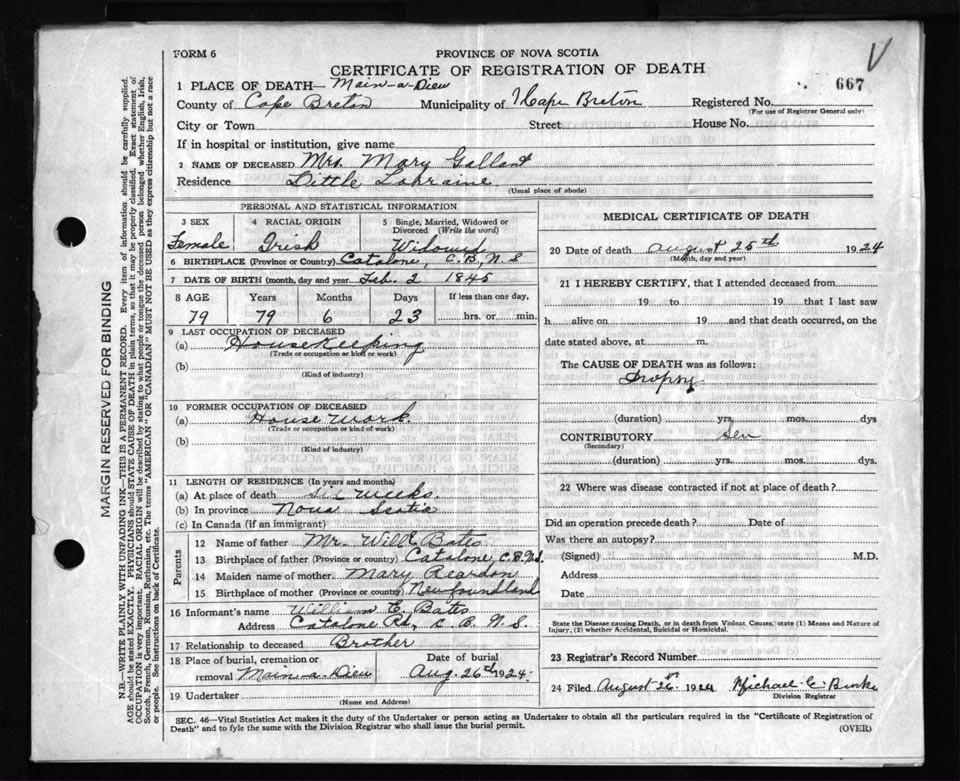 FORM 6
PROVINCE OF NOVA SCOTIA
CERTIFICATE OF REGISTRATION OF DEATH
667
V
1 PLACE OF DEATH— Main-a-Dieu
County of Cape Breton Municipality of Cape Breton Registered No.
(For use of Registrar General only)
City or Town Street House No.
If in hospital or institution, give name
2 NAME OF DECEASED Mrs. Mary Gallant
Residence Little Lorraine
(Usual place of abode)
PERSONAL AND STATISTICAL INFORMATION
3 SEX 4 RACIAL ORIGIN 5 Single, Married, Widowed or Divorced (Write the word)
Female Irish Widowed
6 BIRTHPLACE (Province or Country) Catalone, C.B, N.S
7 DATE OF BIRTH (month, day and year) Feb. 2 1845
8 AGE Years Months Days If less than one day,
79 79 6 23 hrs. or min.
9 LAST OCCUPATION OF DECEASED
(a) Housekeeping
(Trade or occupation or kind or work)
(b)
(Kind of industry)
10 FORMER OCCUPATION OF DECEASED
(a) House Work.
(Trade or occupation or kind of work)
(b)
(Kind of industry)
11 LENGTH OF RESIDENCE (In years and months)
(a) At place of death six weeks.
(b) In province Nova Scotia
(c) In Canada (if an immigrant)
Parents
12 Name of father Mr. Will Bates
13 Birthplace of father (Province or country) Catalone, C.B.N.S.
14 Maiden name of mother Mary Reardon
15 Birthplace of mother (Province or country) Newfoundland
16 Informant's name William E. Batts
Address Catalone Rd, C. B. N. S.
17 Relationship to deceased Brother
18 Place of burial, cremation or removal Main-a-Dieu Date of burial Aug. 26th 1924
19 Undertaker
(Name and Address)
MEDICAL CERTIFICATE OF DEATH
20 Date of death August 25th 1924
(Month, day and year)
21 I HEREBY CERTIFY, that I attended deceased from
19 to 19 that I last saw
h alive on 19 and that death occurred, on the
date stated above, at m.
The CAUSE OF DEATH was as follows:
Dropsy
(duration) yrs. mos. dys
CONTRIBUTORY
(Secondary)
(duration) yrs. mos. dys.
22 Where was disease contracted if not at place of death?
Did an operation precede death? Date of
Was there an autopsy?
(Signed) M.D.
Address
Date
State the Disease causing Death, or in death from Violent Causes, state (1) Means and Nature of
Injury, (2) whether Accidental, Suicidal or Homicidal.
23 Registrar's Record Number
24 Filed August 26th 1924 Michael C. Burke
Division Registrar
SEC. 46—Vital Statistics Act makes it the duty of the Undertaker or person acting as Undertaker to obtain all the particulars required in the "Certificate of Registration of
Death" and to fyle the same with the Division Registrar who shall issue the burial permit.
(OVER)
MARGIN RESERVED FOR BINDING
N.B.—WRITE PLAINLY WITH UNFADING INK—THIS IS A PERMANENT RECORD. Every item of information should be carefully supplied.
AGE should be stated EXACTLY. PHYSICIANS should STATE CAUSE OF DEATH in plain terms, so that it may be properly classified. Exact statement of
OCCUPATION is very important. RACIAL ORIGIN will be described by stating to what people or tongue the deceased person belonged whether English, Irish,
Scotch, French, German, Russian, Ruthenian, etc. The terms "AMERICAN" OR "CANADIAN" MUST NOT BE USED as they express citizenship but not a race
or people. See instructions on back of Certificate.